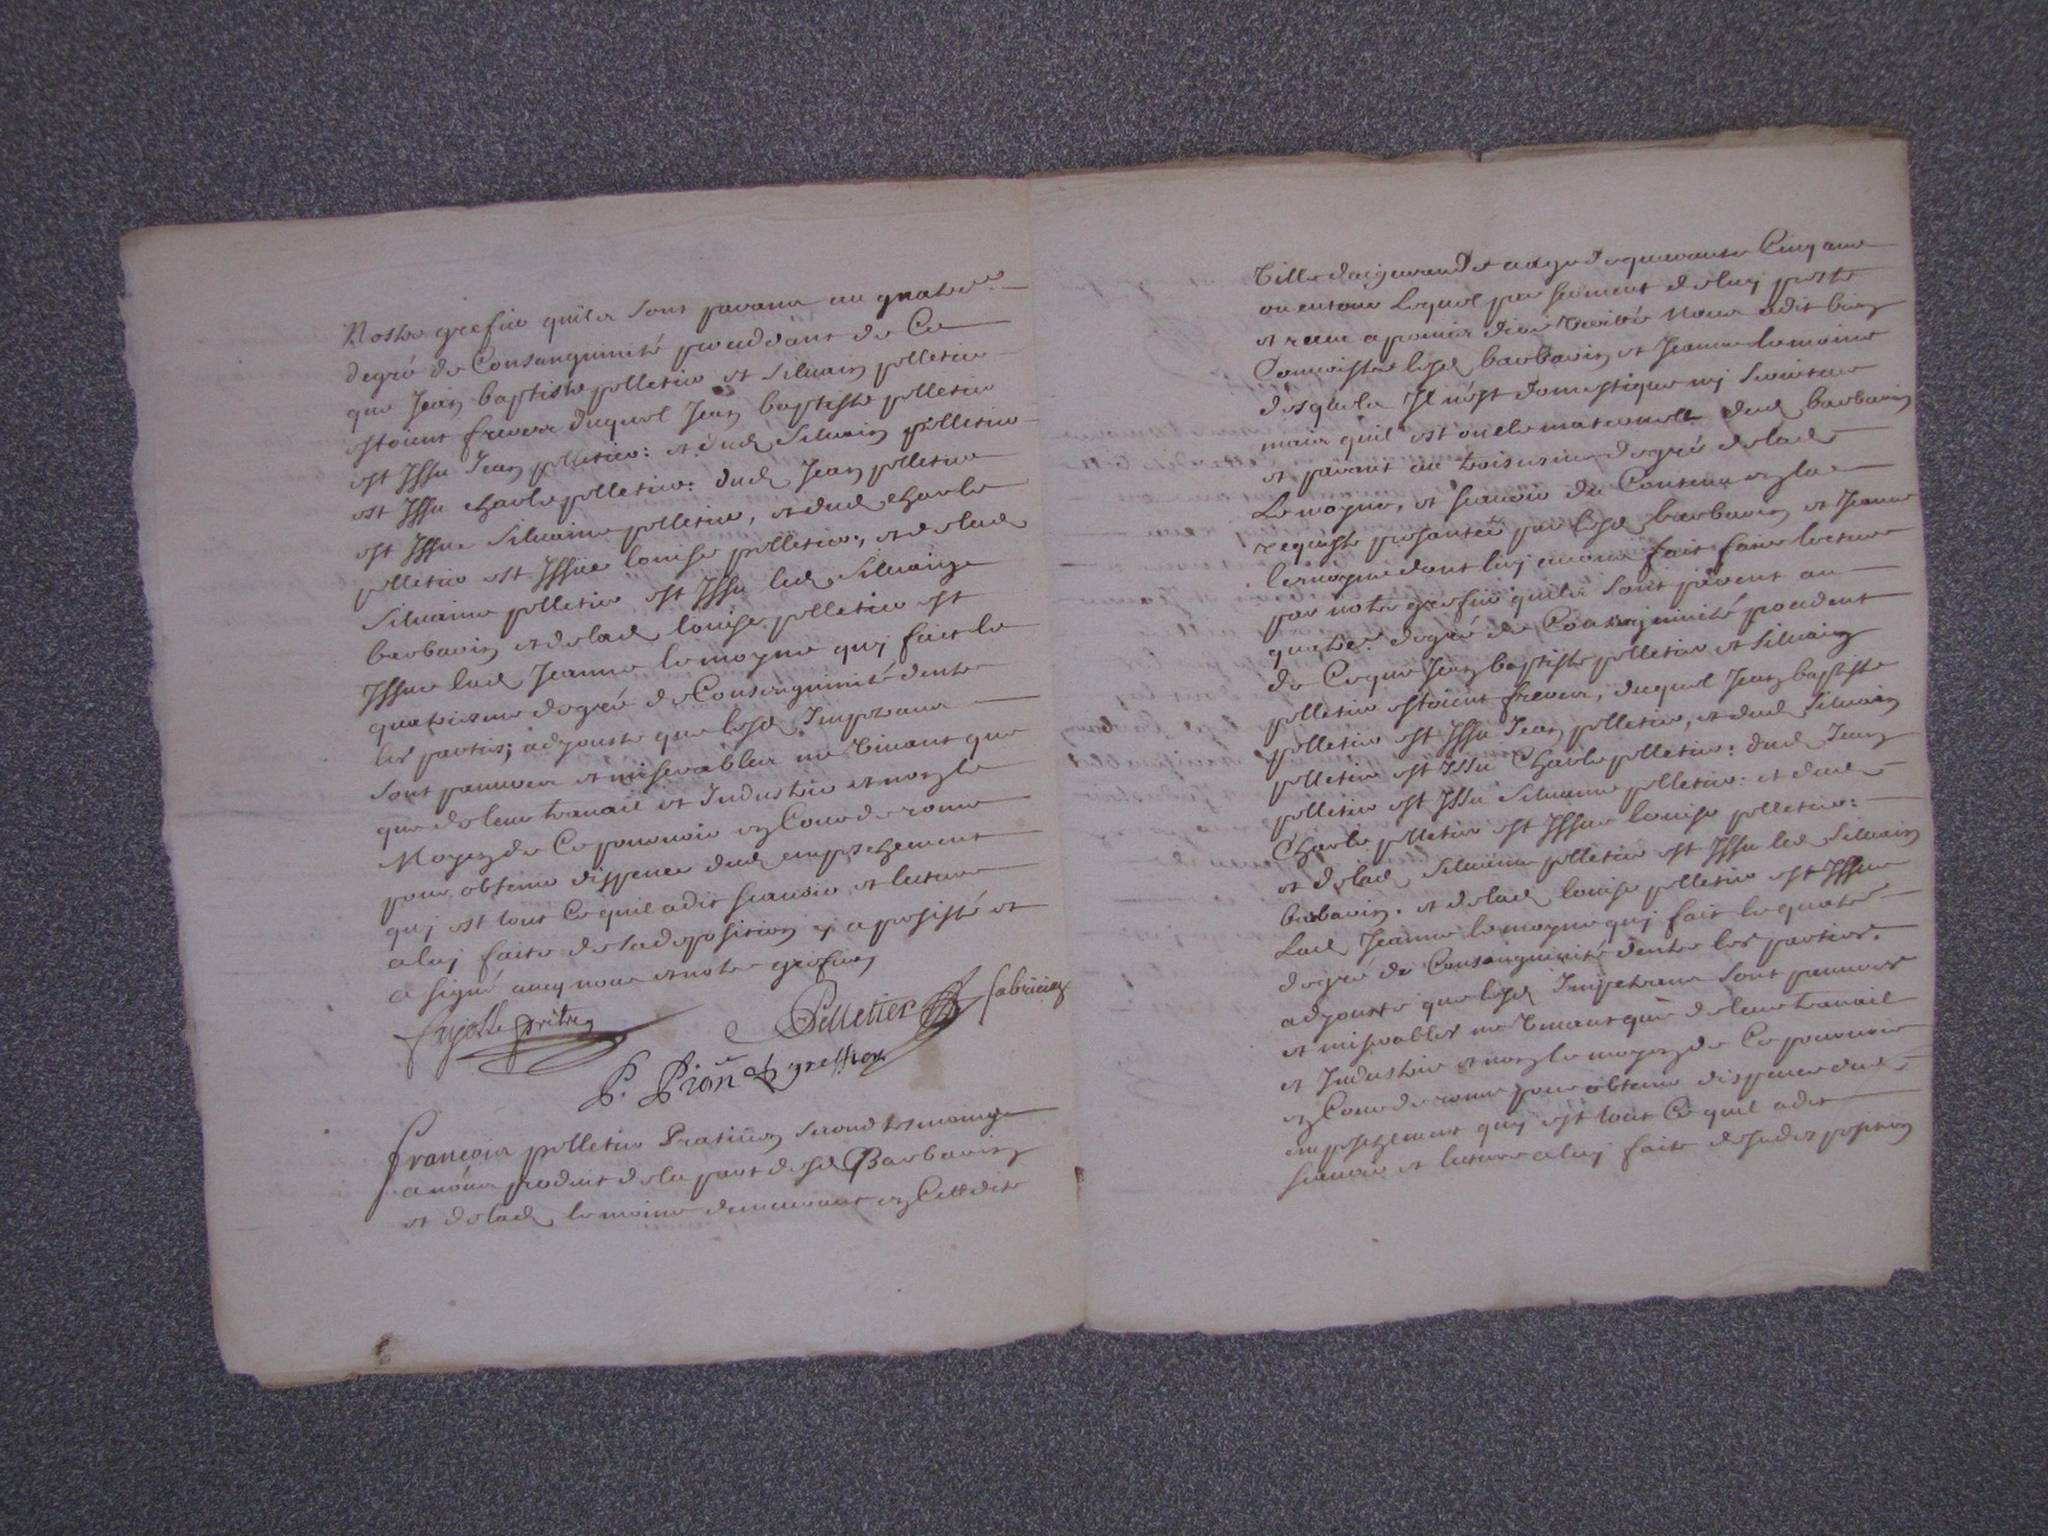 Nostre grefier quils sont parans au quatre.
degré de Consanguinité procedant de Ce
que Jean baptiste pelletier et Siluain pelletier
estoient freres duquel Jean baptiste pelletier
est Issu Jean pelletier: et dud Siluain pelletier
est Issu charle pelletier: dud Jean pelletier
est Issue Siluaine pelletier, et dud charle
pelletier est Issüe louise pelletier, et de lad
Siluaine pelletier est Issu led Siluain
barbarin et de lad louise pelletier est
Issue lad Jeanne lemoyne quj fait le
quatriesme degré de Consanguinité dentre
les partis; adjouste que lesd Impetrans
sont pauures et miserables ne Viuant que
que de leur trauail et Industrie et non le
Moyen de Ce pouruoir en Cour de rome
pour obtenir dispence dud empeschement
quj est tout Ce quil a dit scauoir et lecture
a luj faite de sa deposition y a persisté et
a signé auec nous et notre grefier
prêtre Pelletier fabricien
P. greffier
François pelletier Praticien second tesmoing
a nous produit de la part desd Barbarin
et de lad lemoine demeurant en Cettedite
Ville daigurande aagé de quarante Cinq ans
ou enuiron Lequel par serment de luj presté
et receu a promis dire Verité Nous a dit bien
Connoistre lesd barbarin et Jeanne lemoine
desquels Il nest domestique nj seruiteur
mais quil est oncle maternelle dud barbarin
et parent au troisiesme degré de lade
Lemoyne, et scauoir du Contenu en la
requeste presantée par lesd barbarin et Jeanne
lemoyne dont luj auons fait faire lecture
par notre grefier quils sont parent au
quatre. degré de Consanguinité procedent
de Ce que Jean baptiste pelletier et Siluain
pelletier estoient freres, duquel Jean baptiste
pelletier est Issu Jean pelletier, et dud Siluain
pelletier est Issu Charle pelletier: dud Jean
pelletier est Issu Siluaine pelletier: et dud
Charle pelletier est Issue louise pelletier:
et de lad Siluaine pelletier est Issu led Siluain
barbarin. et de lad louise pelletier est Issue
Lad Jeanne lemoyne quj fait le quatre
degré de Consanguinité dentre les parties.
adjouste que lesd Impetrans sont pauures
et miserables ne Viuant que de leur trauail
et Industrie et non le moyen de Ce pouruoir
en Cour de rome pour obtenir dispence dud
empeschement quj est tout Ce quil a dit
scauoir et lecture a luj faite de sa deposition